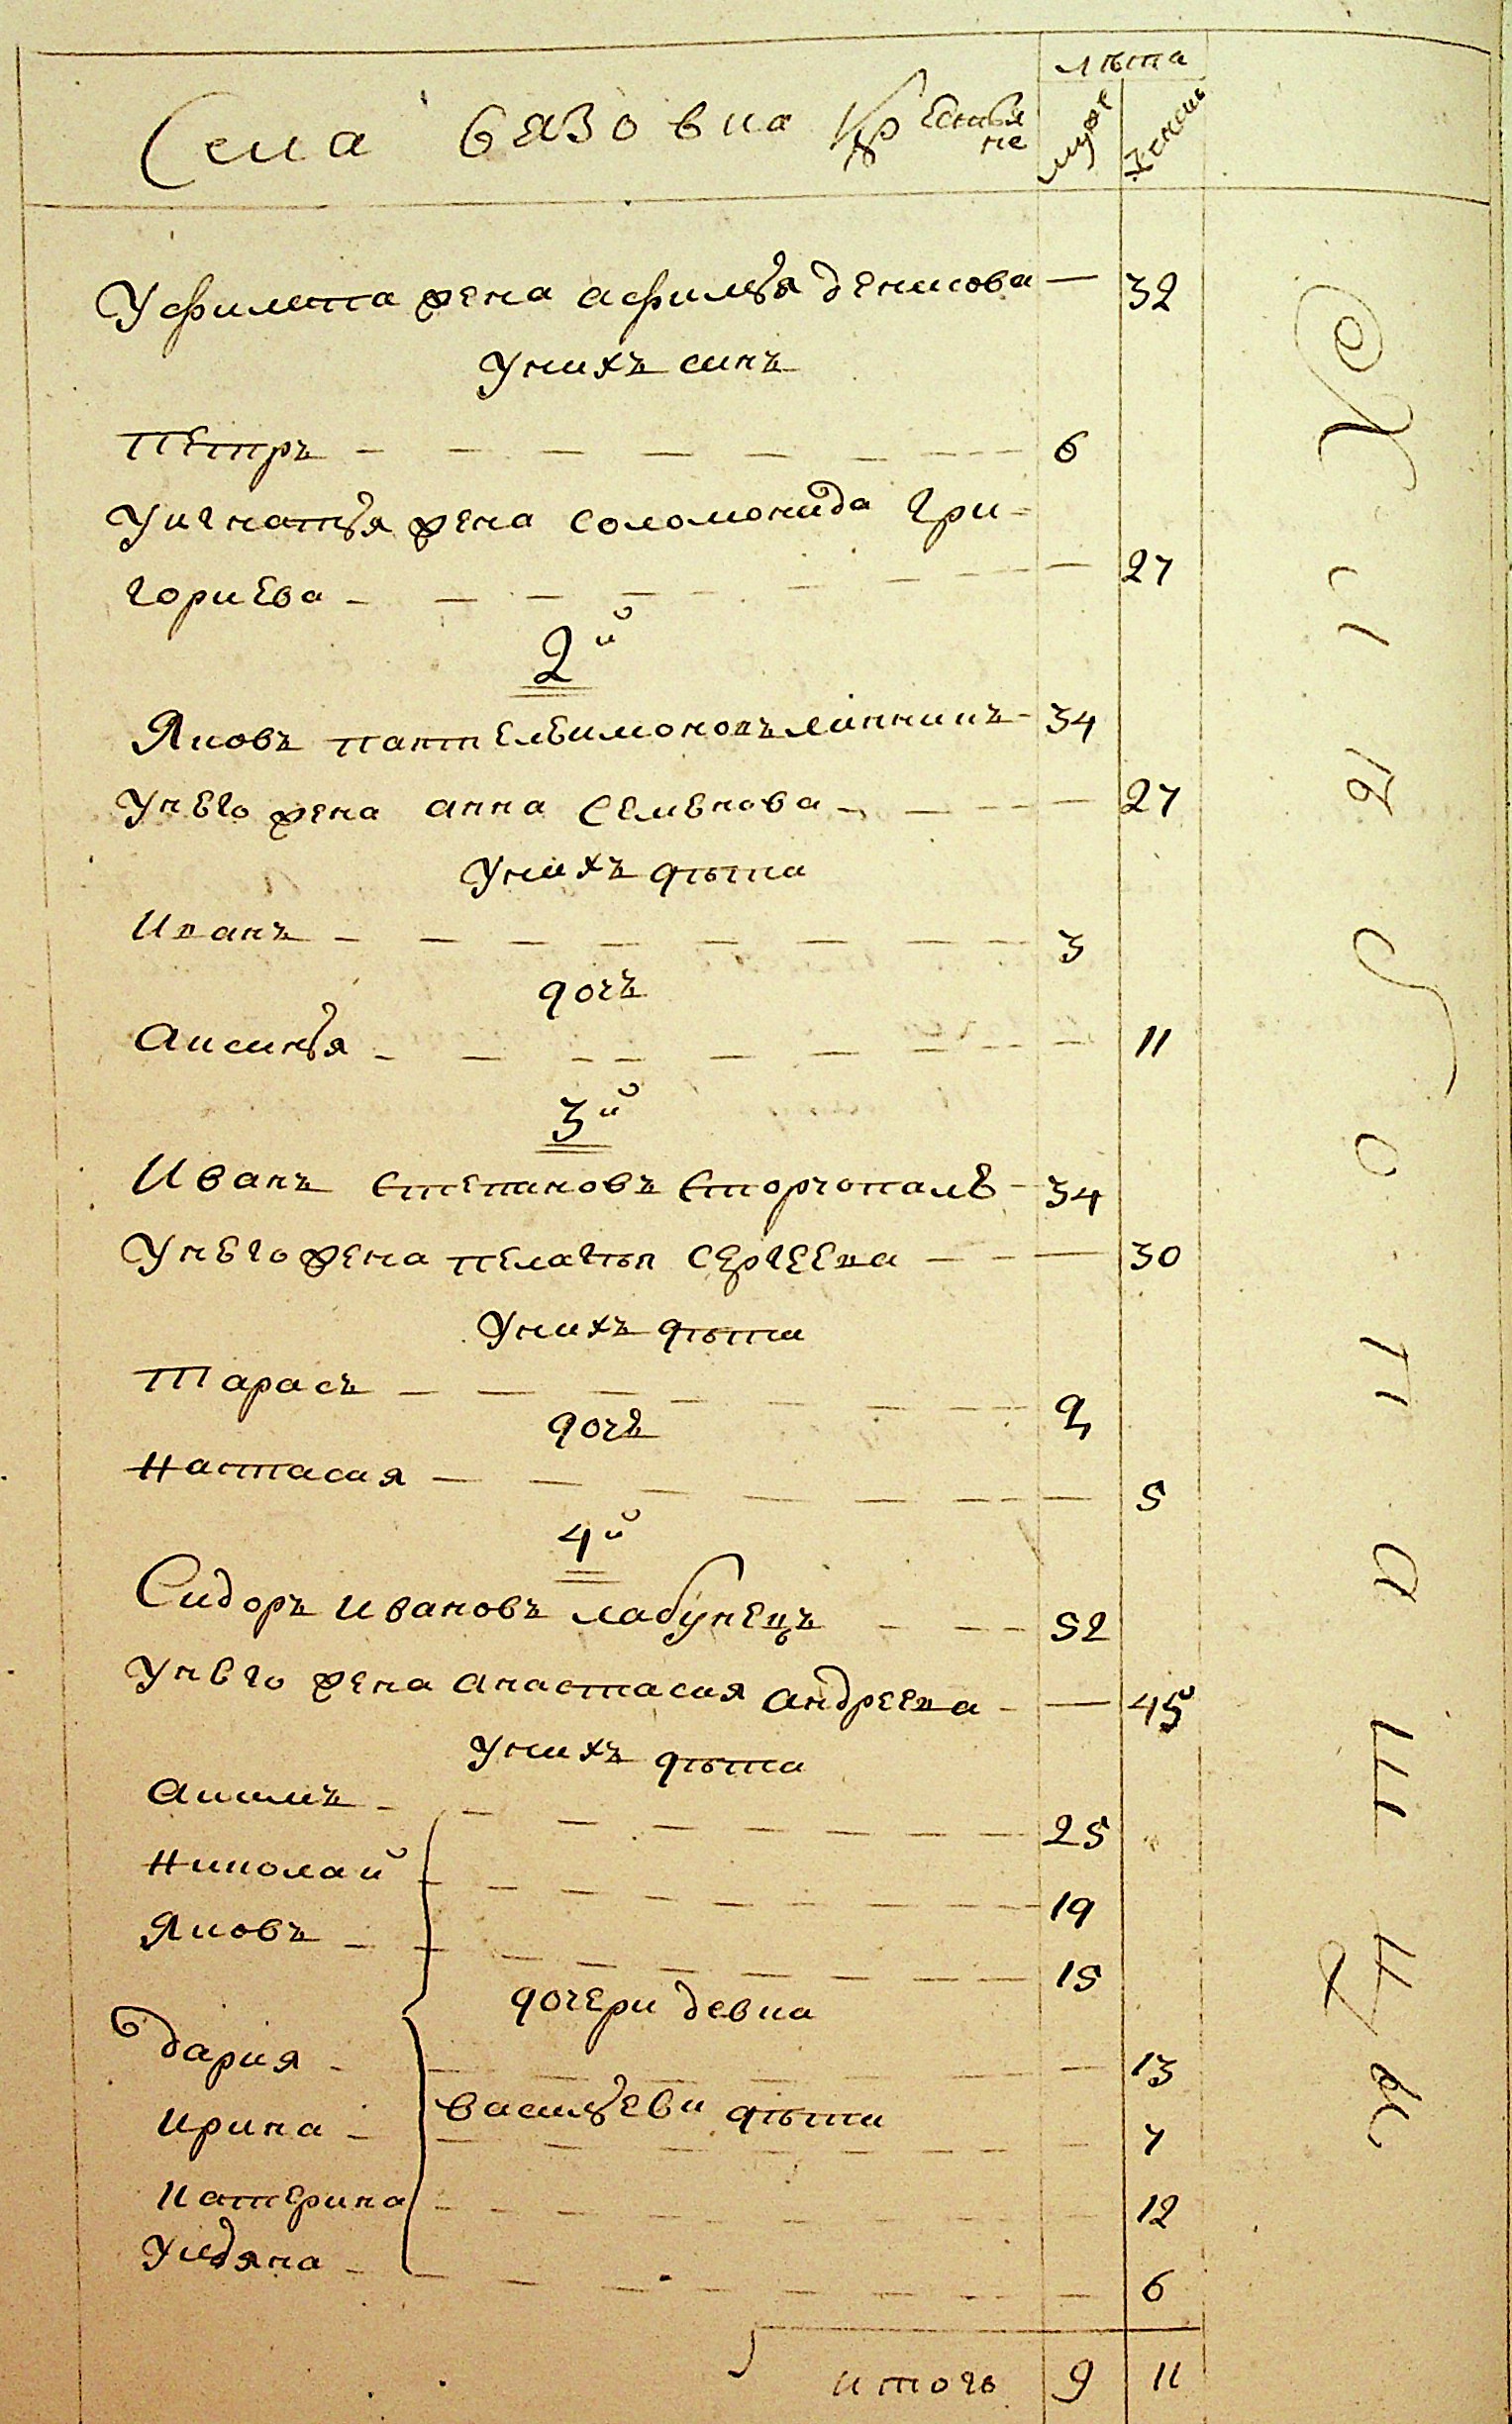 лѣта
Села Бязовка Крестьяне
мужс
женс
У Филипа жена Афимья Денисова — 32
У них сынъ
Петръ — 6
У Игнатья жена Соломонида Гри-
гориева — 27
2й
Яковъ Пантелеимоновъ — 34
У него жена Анна Семенова — 27
У нихъ дѣти
Иванъ — 3
дочь
Аксинья — 11
3й
Иванъ Степановъ Сторчопалъ — 34
У него жена Пелагѣя Сергеева — 30
У нихъ дѣти
Тарасъ — 9
дочь
Настасия — 5
4й
Сидоръ Ивановъ Лабунецъ — 52
У него жена Анастасия Андреева — 45
У нихъ дѣти
Акимъ — 25
Николай — 19
Яковъ — 15
дочери девки
Дария — 13
васильеви дѣти
Ирина — 7
Катерина — 12
Улияна — 6
итого 9 11